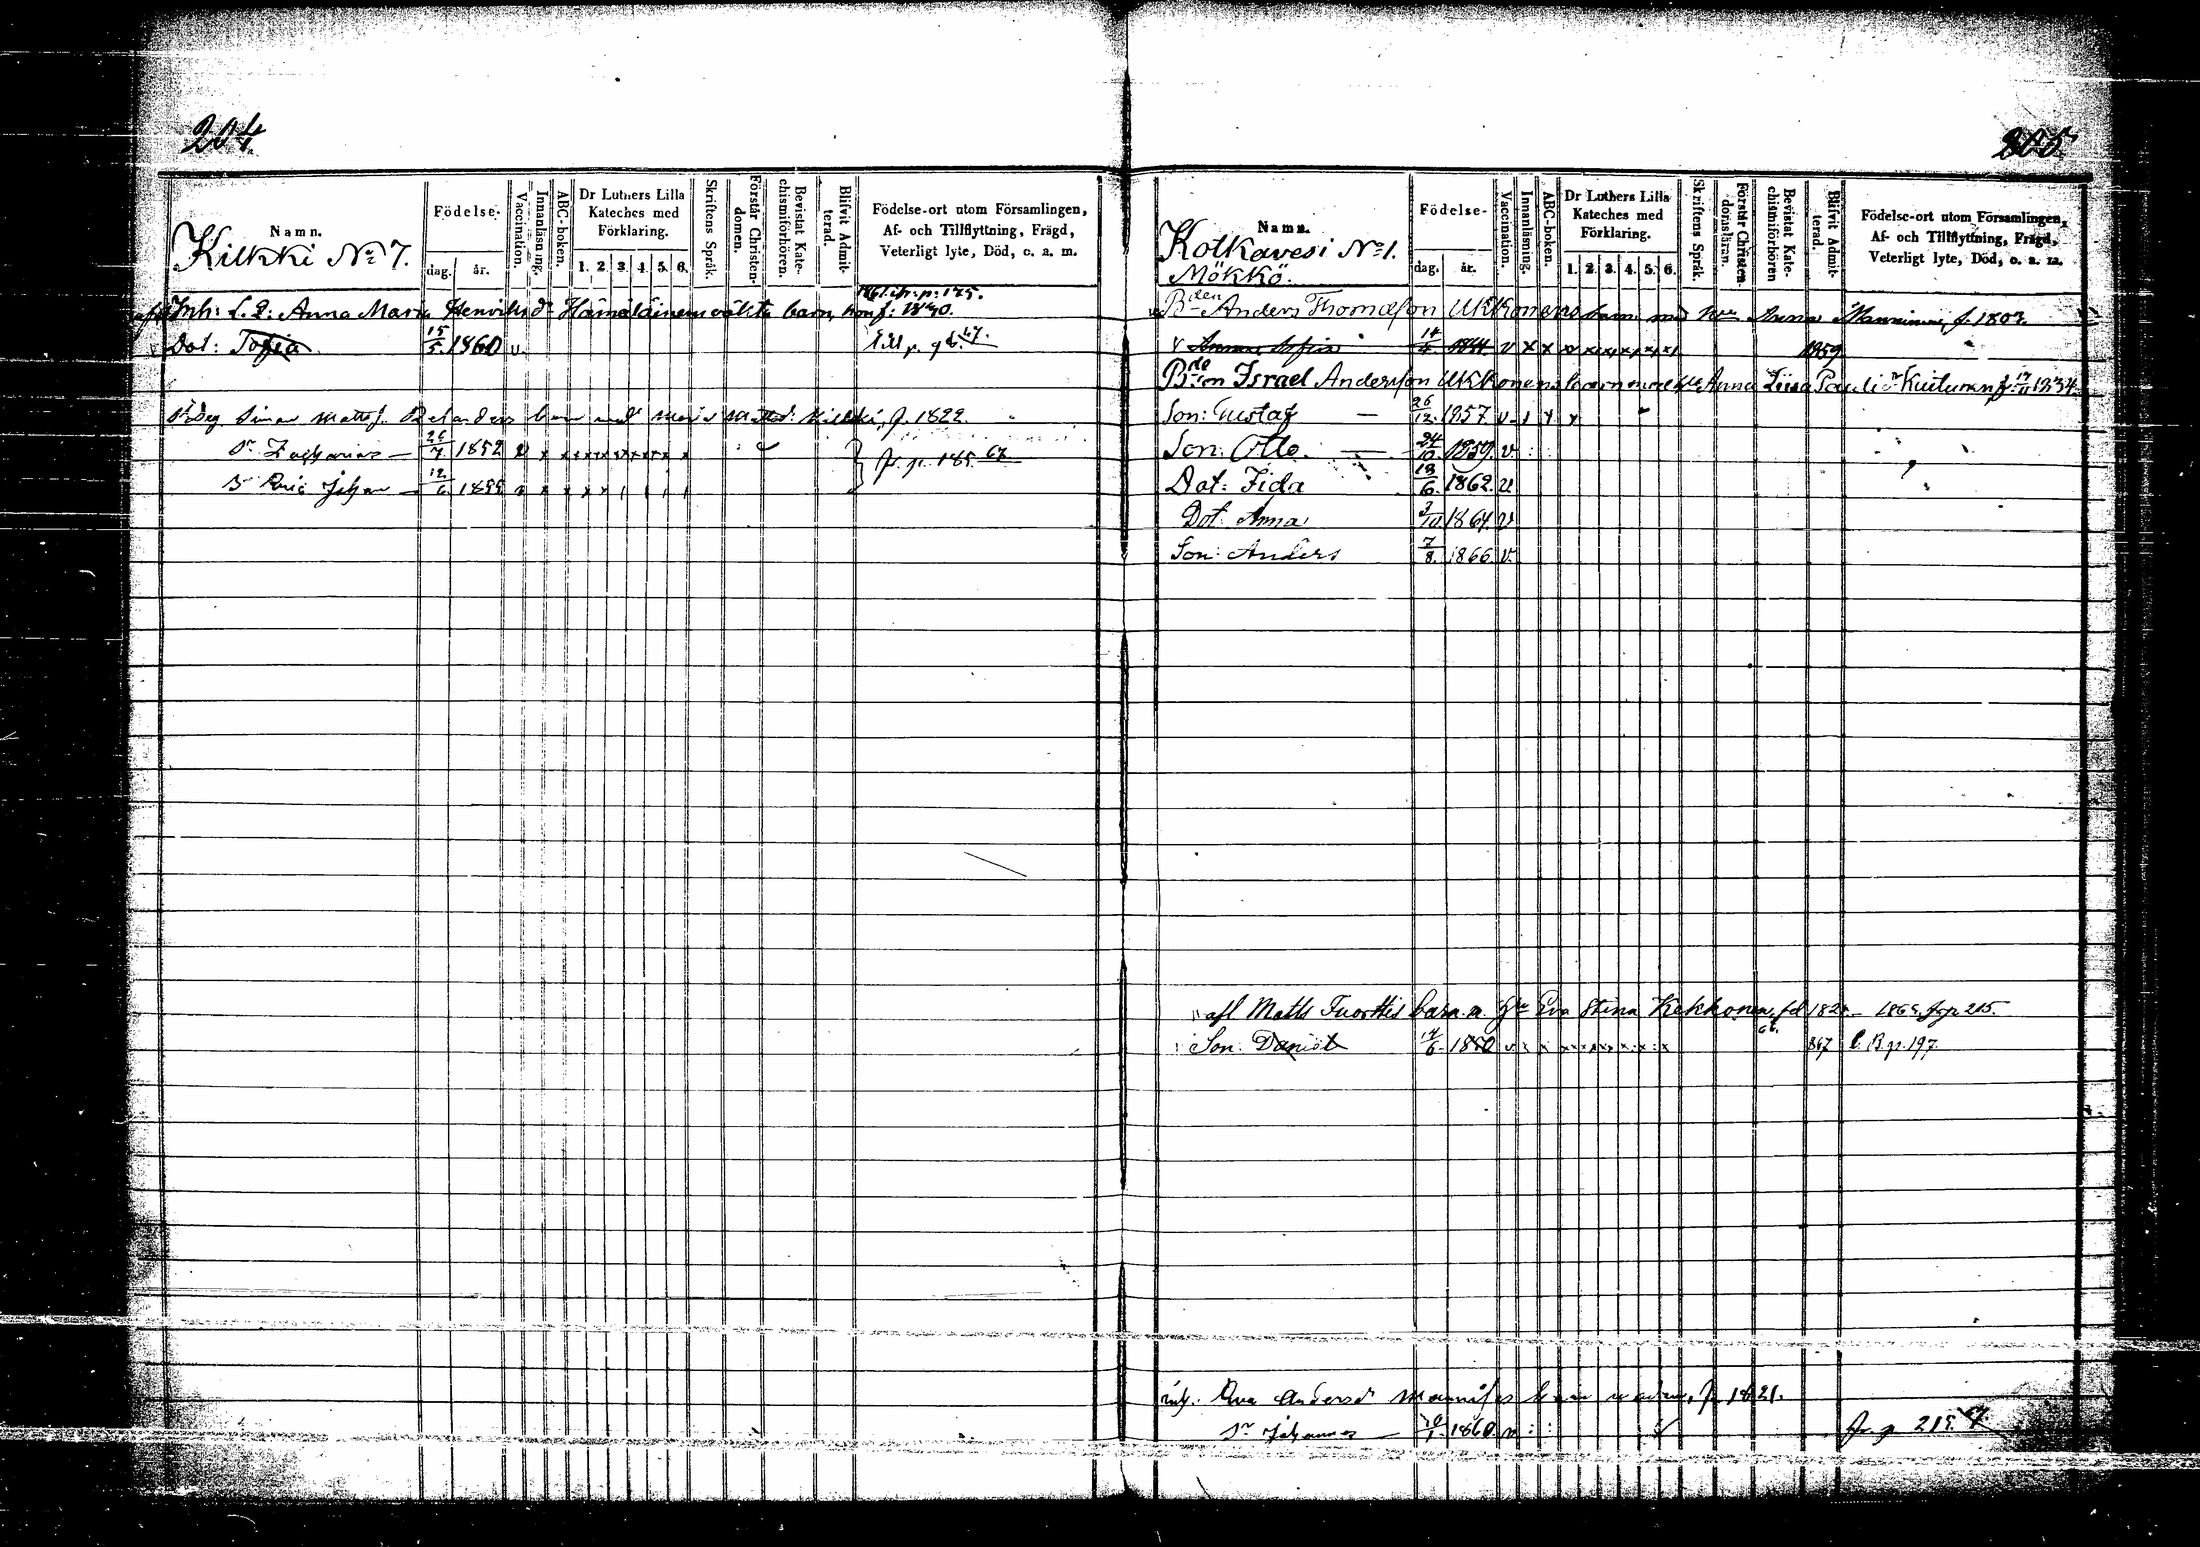 204
Namn.
Kilkki No 7.
Födelse-
dag. år.
Vaccination.
Innanläsning.
ABC-boken.
Dr Luthers Lilla Kateches med Förklaring.
1. 2. 3. 4. 5. 6.
Skriftens Språk.
Förstår Christendomen.
Bevistat Katechismiförhören.
Blifvit Admitterad.
Födelse-ort utom Församlingen, Af- och Tillflyttning, Frägd, Veterligt lyte, Död, o. a. m.
1861 fr. p. 175.
Inh: L. Q: Anna Maria Henriksdr Hämäläinens oäkta barn, hon f: 1840.
Dot: Sofia 15/5. 1860 v. till p. 47.
Matts f. barn med Maria Mattsd: Kilkki, f. 1822.
Sn Zacharias — 26/7 1852 v x x x x x x x x x
fr. p. 185. 67
Sn Eric Johan — 12/6 1855 x x x x x
205.
Namn.
Kolkavesi No 1.
Mökkö.
Födelse-
dag. år.
Vaccination.
Innanläsning.
ABC-boken.
Dr Luthers Lilla Kateches med Förklaring.
1. 2. 3. 4. 5. 6.
Skriftens Språk.
Förstår Christendomslären.
Bevistat Katechismiförhören
Blifvit Admitterad.
Födelse-ort utom Församlingen, Af- och Tillflyttning, Frägd, Veterligt lyte, Död, o. a. m.
Bden Anders Thomasson Ukkonens barn med hu Anna Manninen, f. 1803.
Anna Sofia 14/4. 1841 v x x 1859
Israel Andersson Ukkonens barn med Anna Liisa Paulidr Kuitunen f. 17/11 1834.
Son: Gustaf — 26/12. 1857. v
Son: Otto. — 24/10 1859. v.
Dot: Fida 18/6. 1862. v
Dot: Anna 1864. v
Son: Anders 7/8. 1866. v.
afl Matts Tuorttis barn m. Eva Stina Kekkonen, fd 182 — 1865 fr p 215.
Son: Daniel 14/6. 1850 v x x x x x x x x 867 C. B. p. 197.
inh. Eva Andersdr barn f. 1821.
Sn Johannes — 1860 v fr. p. 215. 67